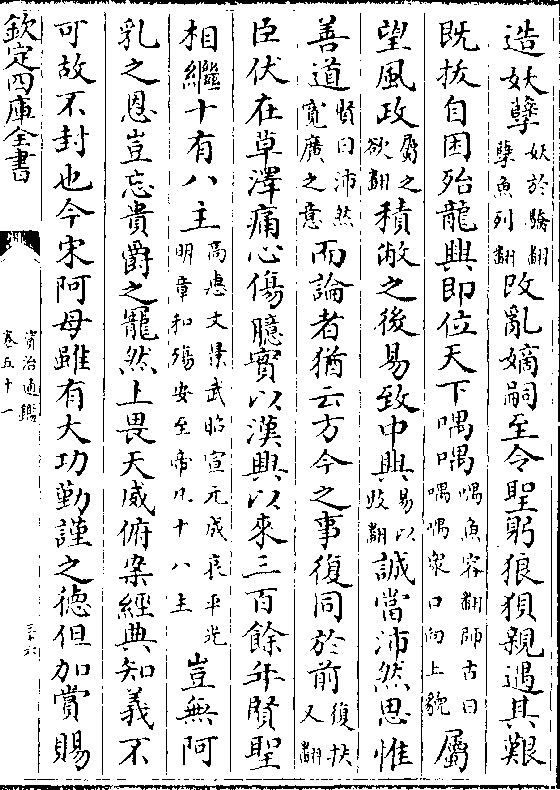 造妖孽妖於驕翻孽魚列翻改亂嫡嗣至令聖躬狼狽親遇其艱
既拔自困殆龍興即位天下喁喁喁魚容翻師古曰喁喁衆口向上貌屬
望風政屬之欲翻積敝之後易致中興易以豉翻誠當沛然思惟
善道賢曰沛然寛廣之意而論者猶云方今之事復同於前復扶又翻
臣伏在草澤痛心傷臆實以漢興以來三百餘年賢聖
相繼十有八主高惠文景武昭宣元成哀平光明章和殤安至帝凡十八主豈無阿
乳之恩豈忘貴爵之寵然上畏天威俯案經典知義不
可故不封也今宋阿母雖有大功勤謹之德但加賞賜
欽定四庫全書
資治通鑑
卷五十一